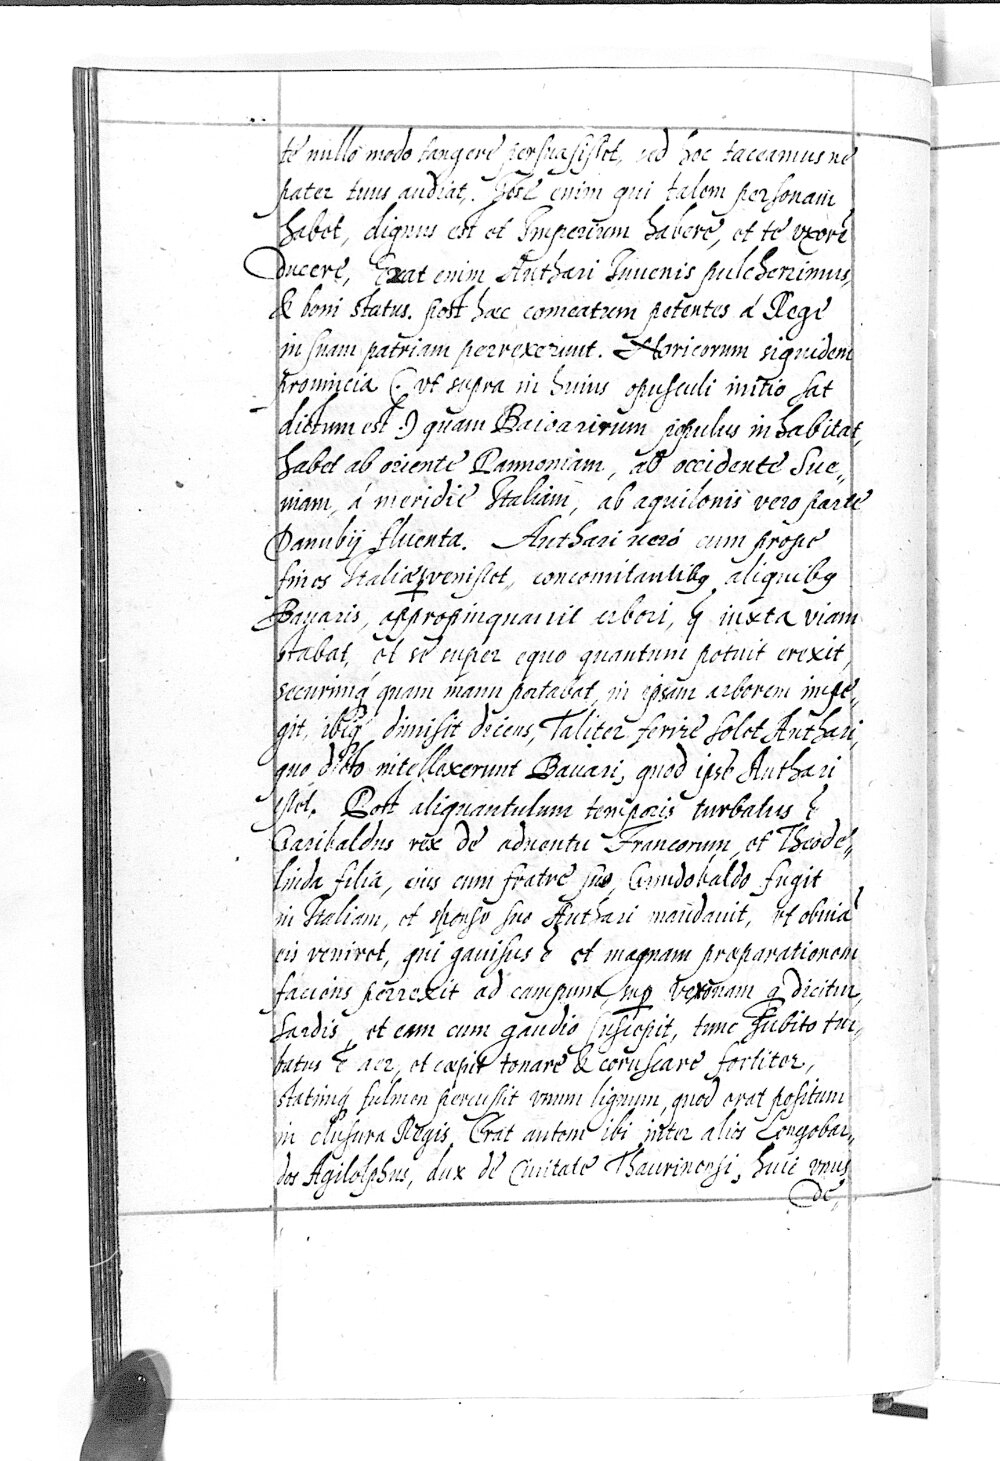 te nullo modo tangere persuasisset, sed hoc taceamus ne
pater tuus audiat. Iste enim qui talem personam
habet, dignus est et Imperium habere, et te uxorē
ducere, Erat enim Anthari Iuvenis pulcherrimus,
& boni status. post hæc comeatum petentes á Rege
in suam patriam perrexerunt. Noricorum siquidem
provincia (. ut supra in huius opusculi initio sat
dictum est .) quam Baioarirum populus inhabitat,
habet ab oriente Pannoniam, ab occidente Sue„
niam, á meridie Italiam, ab aquilonis vero parte
Danubij fluenta. Anthari veró cum prope
fines Italiæ pvenisset, concomitantibꝫ aliquibꝫ
Bavaris, appropinquavit arbori, q̄ iuxta viam
stabat, et se super equo quantum potuit erexit,
securimꝗ́ quam manu portabat, in ipsam arborem impe„
git, ibiꝗ́ dimisit dicens, Taliter ferire solet Anthari,
quo dicto intellaxerunt Bavari, quod ipse Anthari
esset. Post aliquantulum temporis turbatus ē
Garibaldus rex de adventu Francorum, et Theode„
linda filia, eius cum fratre suo, Gundobaldo fugit
in Italiam, et sponso suo Anthari mandavit, ut obviā
eis veniret, qui gavisus ē et magnam præparationem
faciens perrexit ad campum, sup Veronam q dicitur,
Sardis, et eam cum gaudio suscepit, tunc subito tur„
batus ē aer, et cœpit tonare & coruscare fortiter,
statimꝗ fulmen percussit unum lignum, quod erat positum
in clusura Regis, Erat autem ibi inter alios Longobar„
dos Agilolphus, dux de Civitate Thaurinensi, huic unus
de,